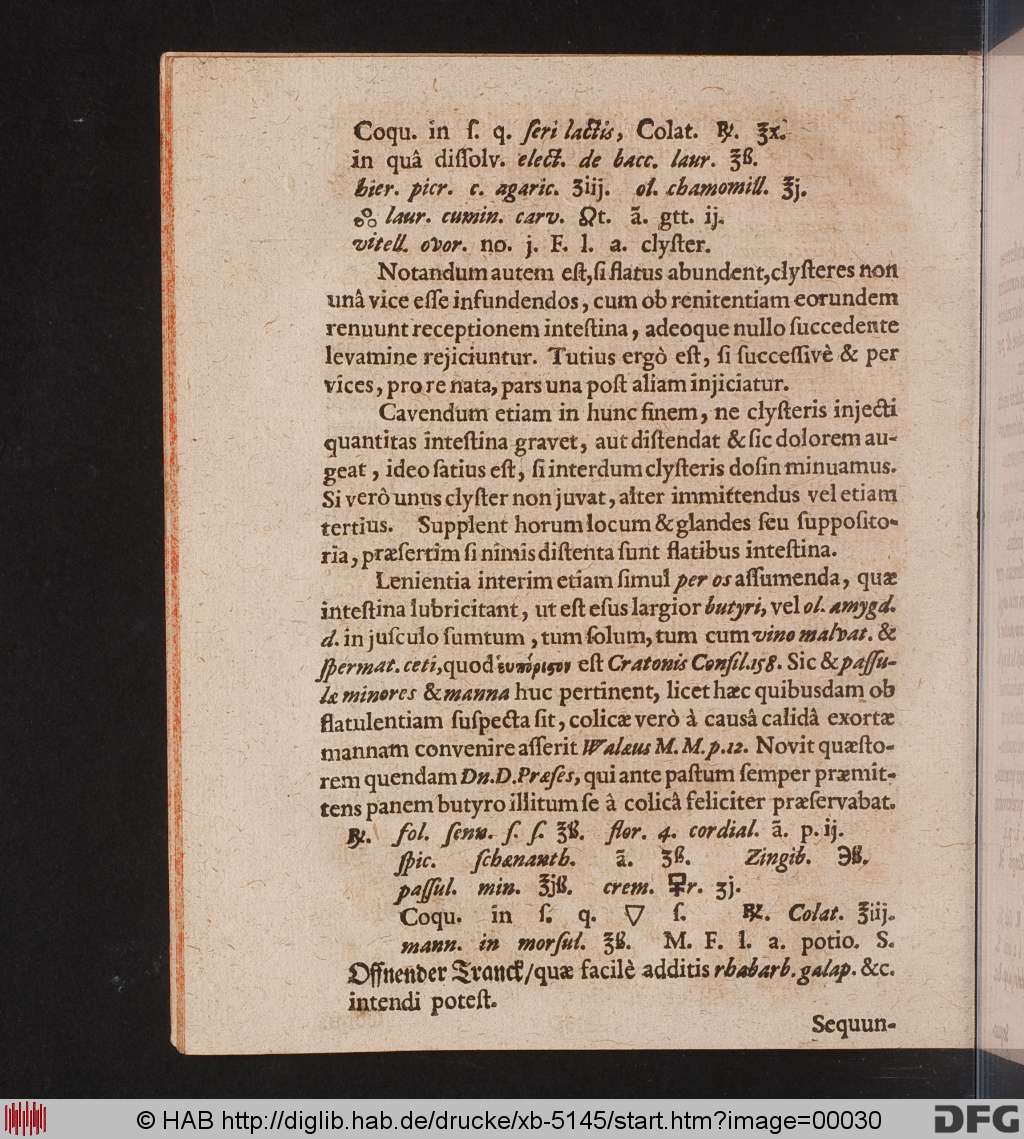 Coqu. in ſ. q. ſeri lactis, Colat. ℞. ʒx.
in quâ diſſolv. elect. de bacc. laur. ℥ß.
hier. picr. c. agaric. ʒiij. ol. chamomill. ℥j.
laur. cumin. carv. t. ã. gtt. ij.
vitell. ovor. no. j. F. l. a. clyſter.
Notandum autem eſt, ſi flatus abundent, clyſteres non
unâ vice eſſe infundendos, cum ob renitentiam eorundem
renuunt receptionem inteſtina, adeoque nullo ſuccedente
levamine rejiciuntur. Tutius ergò eſt, ſi ſucceſſivè & per
vices, pro re nata, pars una poſt aliam injiciatur.
Cavendum etiam in hunc finem, ne clyſteris injecti
quantitas inteſtina gravet, aut diſtendat & ſic dolorem au-
geat, ideo ſatius eſt, ſi interdum clyſteris doſin minuamus.
Si verò unus clyſter non juvat, alter immittendus vel etiam
tertius. Supplent horum locum & glandes ſeu ſuppoſito-
ria, præſertim ſi nimis diſtenta ſunt flatibus inteſtina.
Lenientia interim etiam ſimul per os aſſumenda, quæ
inteſtina lubricitant, ut eſt eſus largior butyri, vel ol. amygd.
d. in juſculo ſumtum, tum ſolum, tum cum vino malvat. &
ſpermat. ceti, quod ἐυπόριςον eſt Cratonis Conſil. 158. Sic & paſſu-
læ minores & manna huc pertinent, licet hæc quibusdam ob
flatulentiam ſuſpecta ſit, colicæ verò à causâ calidâ exortæ
mannam convenire aſſerit Walæus M. M. p. 12. Novit quæſto-
rem quendam Dn. D. Præſes, qui ante paſtum ſemper præmit-
tens panem butyro illitum ſe â colicâ feliciter præſervabat.
℞. fol. ſenn. ſ. ſ. ℥ß. flor. 4. cordial. ã. p. ij.
ſpic. ſchœnanth. ã. ʒß. Zingib. ℈ß.
paſſul. min. ℥jß. crem. 🜿r. ʒj.
Coqu. in ſ. q. ▽ ſ. ℞. Colat. ℥iij.
mann. in morſul. ℥ß. M. F. l. a. potio. S.
Offnender Tranck/ quæ facilè additis rhabarb. galap. &c.
intendi poteſt.
Sequun-
© HAB http://diglib.hab.de/drucke/xb-5145/start.htm?image=00030
DFG